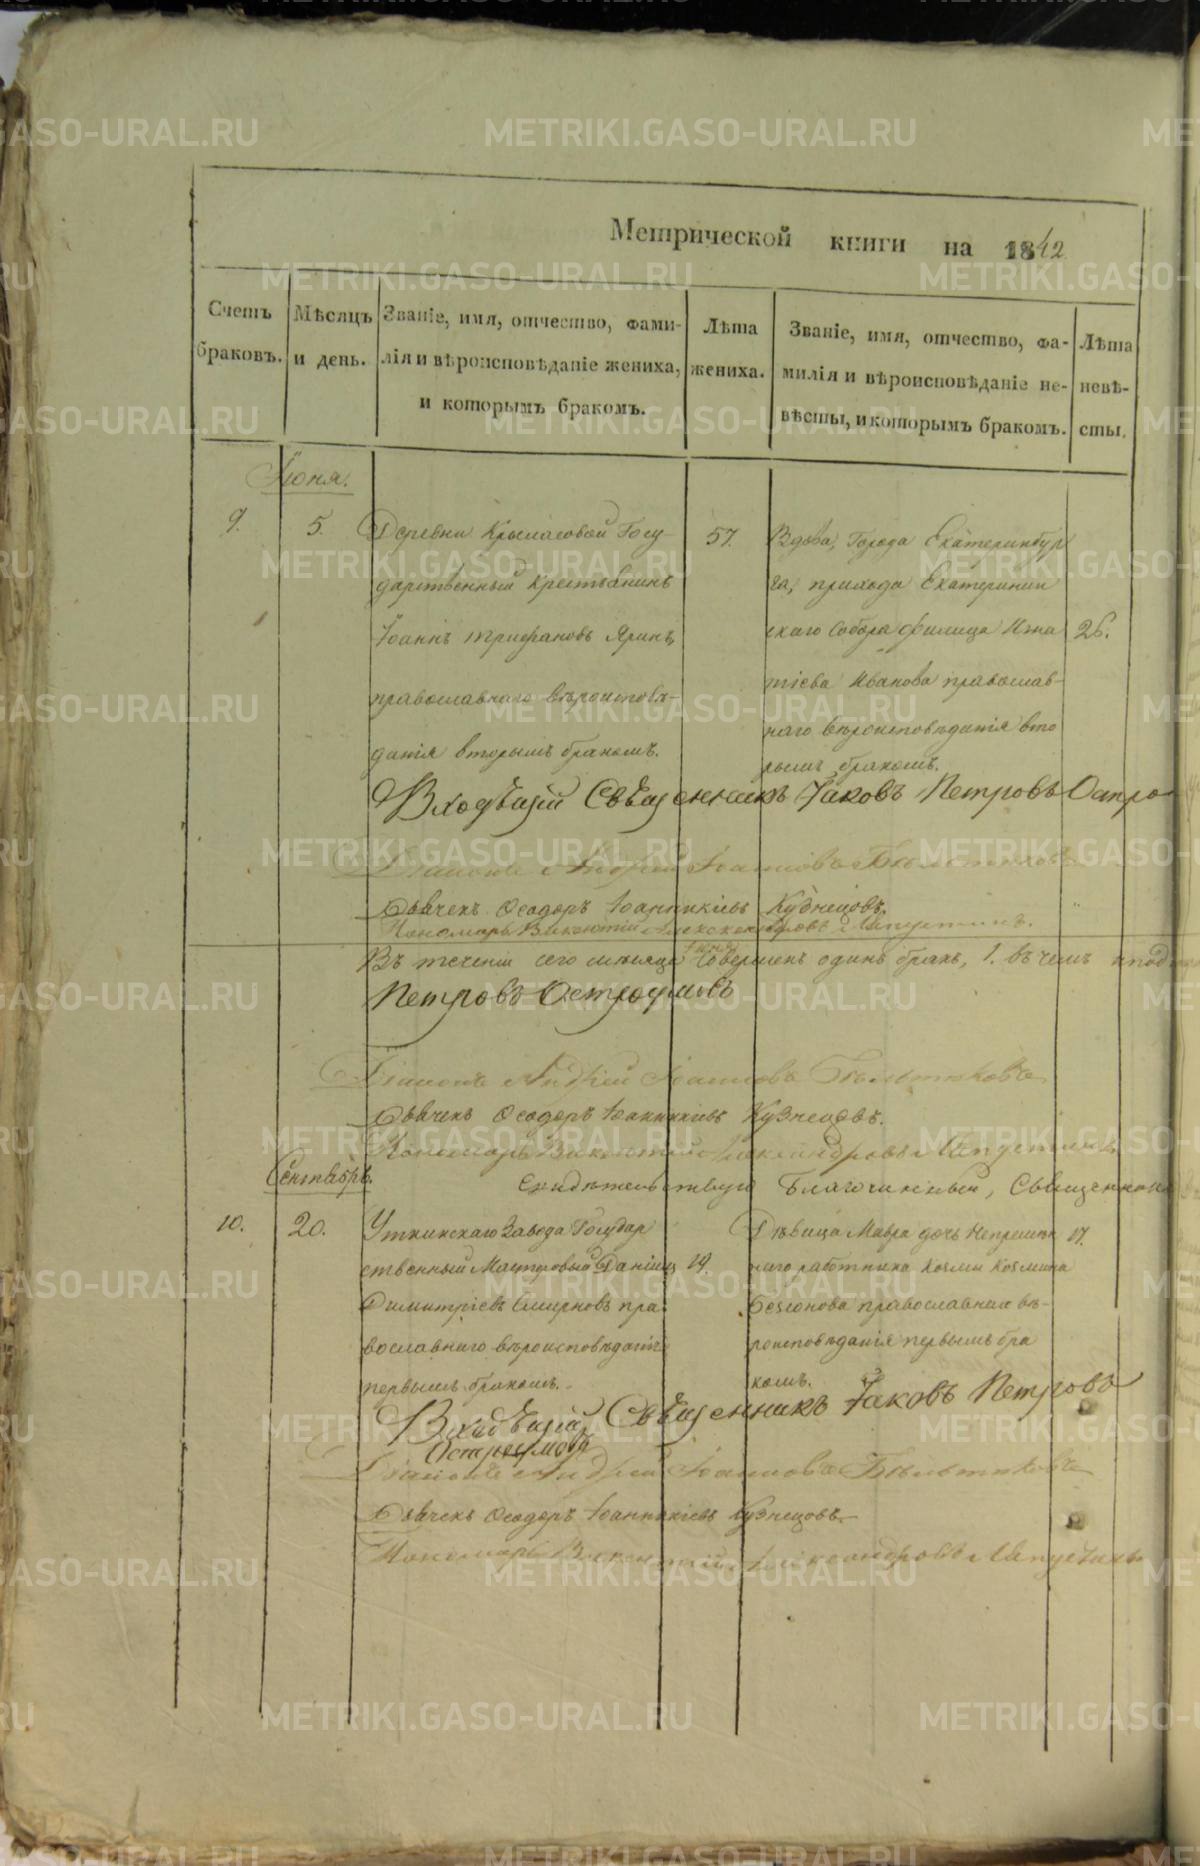 Метрической книги на 1842
Счетъ браковъ.
Мѣсяцъ и день.
Званіе, имя, отчество, фами-
лія и вѣроисповѣданіе жениха,
и которымъ бракомъ.
Лѣта жениха.
Званіе, имя, отчество, фа-
милія и вѣроисповѣданіе не-
вѣсты, и которымъ бракомъ.
Лѣта невѣ-
сты.
Іюня.
9.
5.
Деревни Крыласовой Госу-
дарственный крестьянинъ
Іоаннъ Трифановъ Яринъ,
православнаго вѣроисповѣ-
данія вторымъ бракомъ.
57.
Вдова, Города Екатеринбур
га, прихода Екатеринин
скаго Собора Филица Игна
тіева Иванова православ-
наго вѣроисповѣданія вто
рымъ бракомъ.
26.
Священникъ Іаковъ Петровъ Остро
Діаконъ Андрей Іоанновъ
Дьячекъ Ѳеодоръ Іоанникіевъ Кузнецовъ.
Пономарь Викентій Александровъ
Въ теченіи сего мѣсяца Іюня совершенъ одинъ бракъ, 1. въ чемъ
Петровъ Остроумовъ
Діаконъ Андрей Іоанновъ
Дьячекъ Ѳеодоръ Іоанникіевъ Кузнецовъ.
Пономарь Викентій Александровъ
Сентябрь.
Свидѣтельствую Благочинный, Священникъ
10.
20.
Уткинскаго Завода Государ
ственный Мастеровый Даніилъ
Димитріевъ Смирновъ пра
вославнаго вѣроисповѣданія
первымъ бракомъ.
19.
Дѣвица Мавра дочь Непремѣн
наго работника Козмы Козмина
православнаго вѣ-
роисповѣданія первымъ бра
комъ.
17.
Священникъ Іаковъ Петровъ
Остроумовъ
Діаконъ Андрей Іоанновъ
Дьячекъ Ѳеодоръ Іоанникіевъ Кузнецовъ.
Пономарь Викентій Александровъ
METRIKI.GASO-URAL.RU